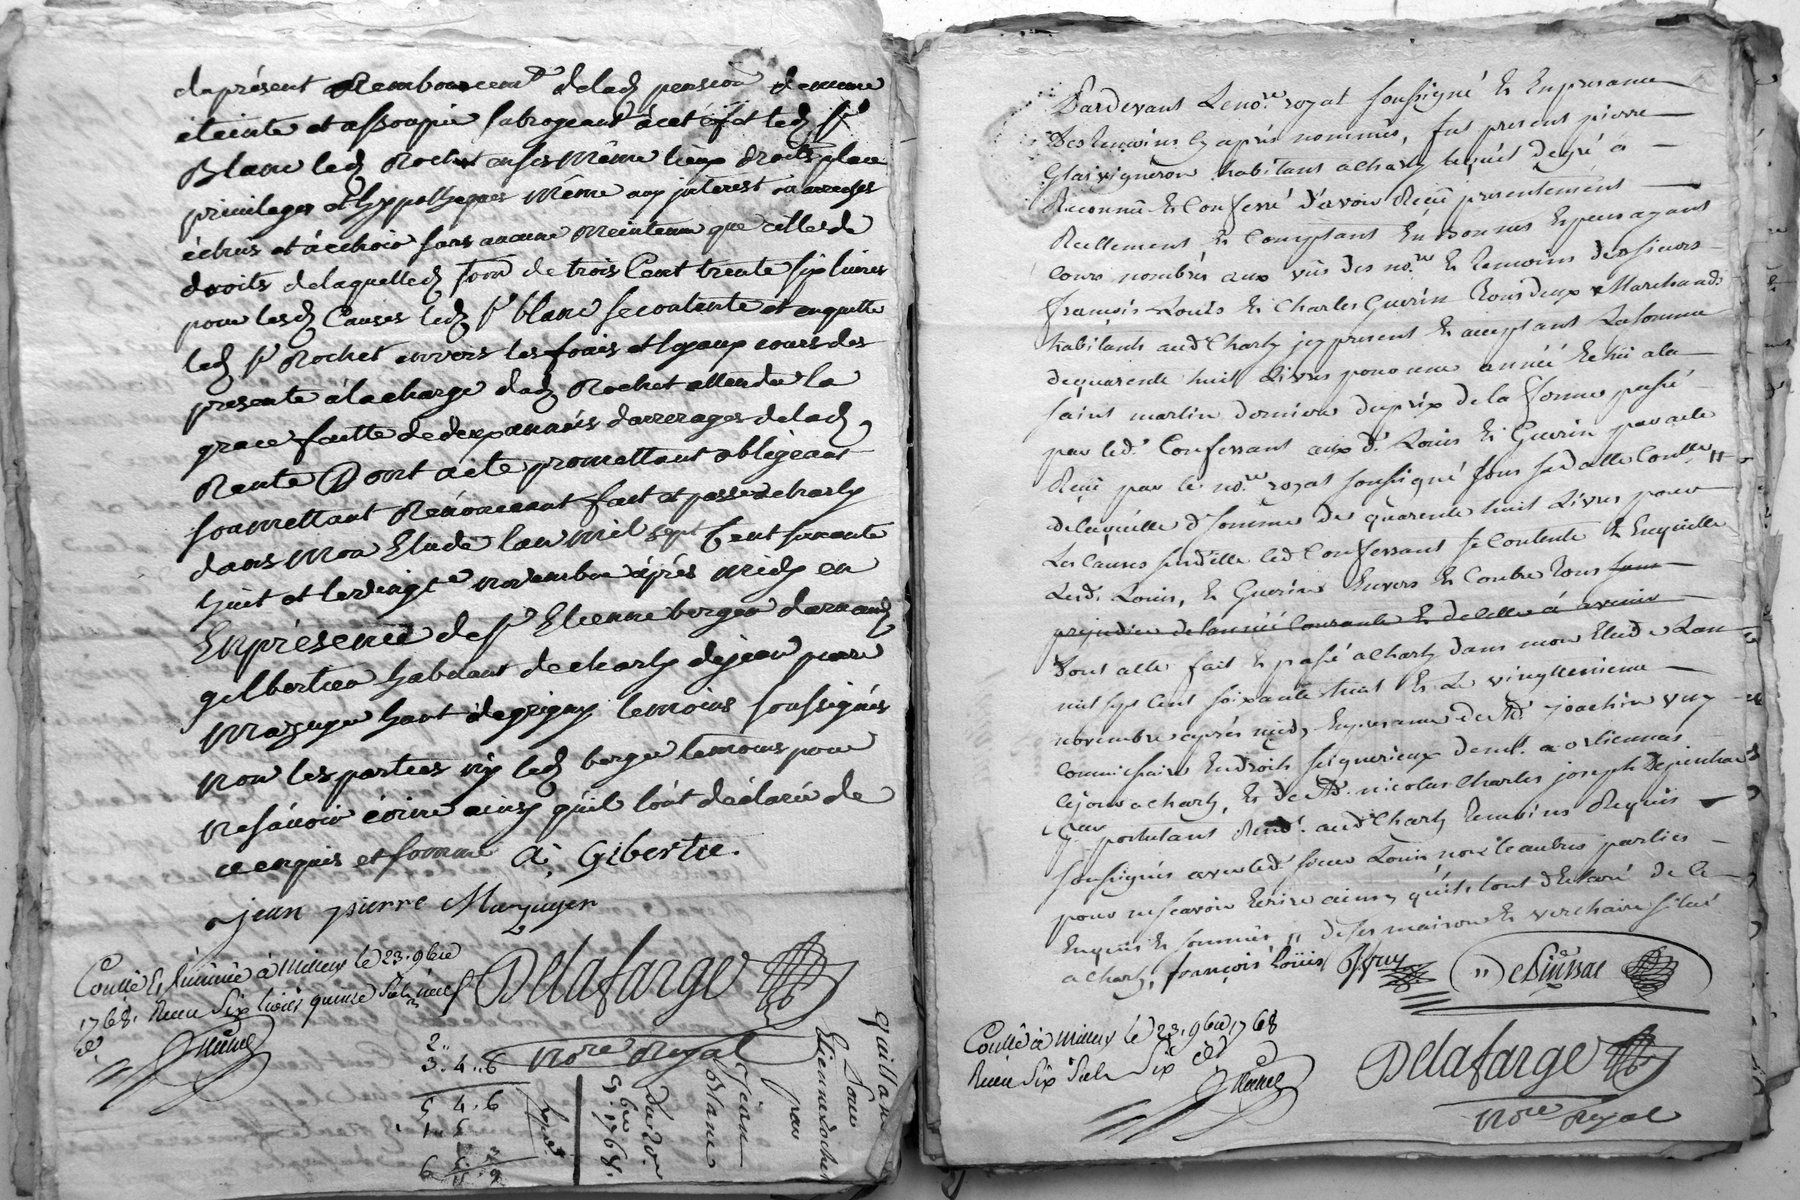 deprésent Rembourcemt delad pension demeure
éteinte et assoupie subrogeant àcet éfet led Sr
Blanc led Rochet en ses même lieux droits place
privileges et hyppotheques même aux jnterest ou arrerages
échus et àéchoir sans aucune meintenue que celle de
droits delaquelled some de trois Cent trente six livres
pour lesd Causes led Sr blanc secontente et enquitte
led Sr Rochet envers les frais et loyaux cours des
presente àlacharge dud Rochet attendu la
grace faitte de deux années darrerages delad
Rente Dont acte promettant obligeant
soumettant Rénoncent fait et passé acharly
dans mon Etude lan mil sept Cent soixante
huit et levingt novembre après midy en
Enprésence de Sr Etienne berger
gilbertier habitant de charly dejean pierre
Mazuyer hant degrigny temoins soussignés
non les parties ny led berger temoins pour
nesavoir écrire ainsy quil lont déclaré de
ce enquis et sommé A; Giberter.
jean pierre Mazuyer
Conllé & Insinué à Millery le 23. 9bre
1768. Receu Six livres quinze Sols neuf
Delafarge
Nore Royal
2"
3. 4. 6
5 4. 6
1. 5
6 11. 9
quittance
Sous
Etienne Rochet
par
Jean
Blanc
du 20e
9bre
1768.
Pardevant Lenore royal soussigné Et Enpresence
Des temoins cy après nommés, fut present pierre
Glas vigneron habitant acharly lequel degré a
Reconnu Et Confessé d'avoir Receu presentement
Reellement Et Comptant En bonnes Especes ayant
cours nombrés aux vûs des nore Et temoins des sieurs
françois Louis Et Charles Guerin tous deux Marchands
habitants aud Charly jcy present Et acceptant La somme
dequarente huit Livres pour une année Echue ala
saint martin dernier du prix de la ferme passé
par led. Confessant auxd. Louis Et Guerin par acte
Receu par le nore royal soussigné sous sa datte Conllé
delaquelle d somme de quarente huit Livres pour
Les Causes susd elle led Confessant se Contente Et Enquitte
Lesd. Louis, Et Guerin Envers Et Contre tous sans
prejudice de lannée Courante Et de celle à avenir
Dont acte fait Et passé acharly dans mon Etude Lan
mil sept Cent soixante huit Et Le vingtieme
novembre après midy Enpresence de Me joachin
Commissaire En droits seigneuriaux demt. a orlienas
cejour acharly, Et de Me. nicolas Charles joseph Depinhac
postulant aud Charly temoins Requis
soussignés avec led sieur Louis non le autres parties
pour ne scavoir Ecrire ainsy qu'ils lont Déclaré de Ce
Enquis Et sommés, de ses maison Et verchaire situé
acharly, françois Loüis
Delafarge
Nore Royal
Conllé à Millery le 23. 9bre 1768
Receu Six Sols Six drs